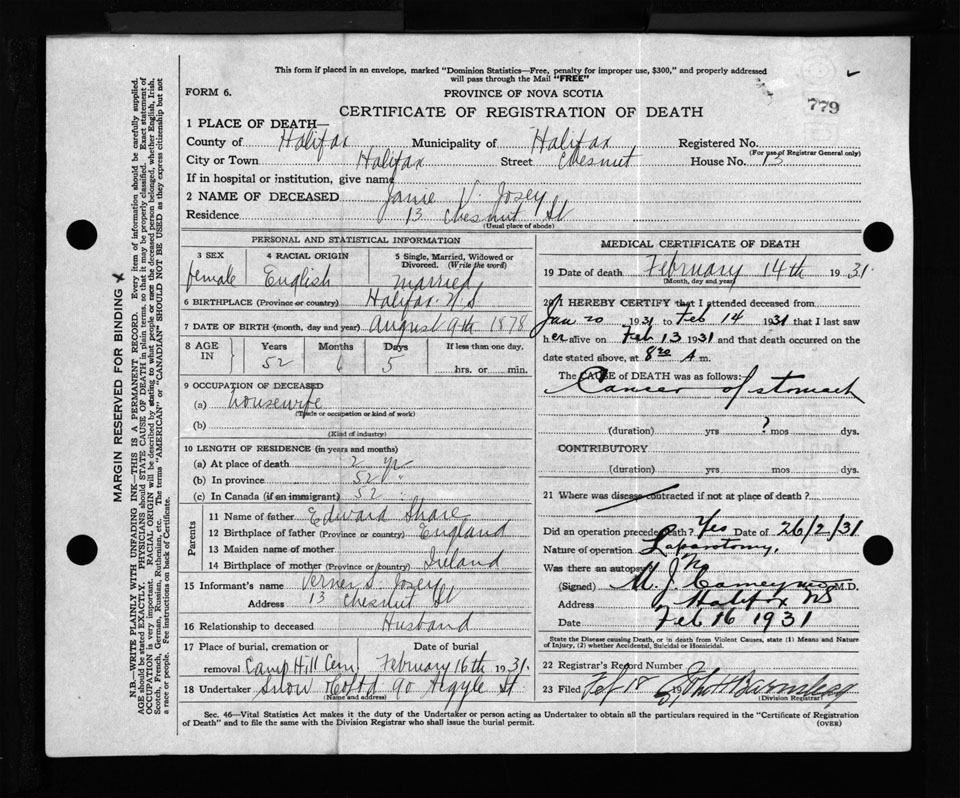 This form if placed in an envelope, marked "Dominion Statistics—Free, penalty for improper use, $300," and properly addressed
will pass through the Mail "FREE"
FORM 6.
PROVINCE OF NOVA SCOTIA
779
CERTIFICATE OF REGISTRATION OF DEATH
1 PLACE OF DEATH—
County of Halifax Municipality of Halifax Registered No.
(For use of Registrar General only)
City or Town Halifax Street Chesnut House No. 13
If in hospital or institution, give name
2 NAME OF DECEASED Janie V. Josey
Residence 13 Chesnut St
(Usual place of abode)
PERSONAL AND STATISTICAL INFORMATION
3 SEX 4 RACIAL ORIGIN 5 Single, Married, Widowed or
Divorced. (Write the word)
female English married
6 BIRTHPLACE (Province or country) Halifax N.S
7 DATE OF BIRTH (month, day and year) August 9th 1878
8 AGE IN Years Months Days If less than one day.
52 6 5 hrs. or min.
9 OCCUPATION OF DECEASED
(a) housewife
(Trade or occupation or kind of work)
(b)
(Kind of industry)
10 LENGTH OF RESIDENCE (in years and months)
(a) At place of death 2 yr
(b) In province 52 "
(c) In Canada (if an immigrant) 52
Parents
11 Name of father Edward
12 Birthplace of father (Province or country) England
13 Maiden name of mother
14 Birthplace of mother (Province or country) Ireland
15 Informant's name Verner S. Josey
Address 13 Chesnut St
16 Relationship to deceased Husband
17 Place of burial, cremation or Date of burial
removal Camp Hill Cem. February 16th 1931.
18 Undertaker Snow & Co Ltd 90 Argyle St
(Name and address)
MEDICAL CERTIFICATE OF DEATH
19 Date of death February 14th 1931.
(Month, day and year)
20 I HEREBY CERTIFY that I attended deceased from
Jan 20 1931 to Feb 14 1931 that I last saw
her alive on Feb 13 1931 and that death occurred on the
date stated above, at 8 30 A m.
The CAUSE of DEATH was as follows:
Cancer of stomach
(duration) yrs ? mos dys.
CONTRIBUTORY
(duration) yrs mos dys.
21 Where was disease contracted if not at place of death ?
Did an operation precede death? Yes Date of 26/2/31
Nature of operation Laparotomy.
Was there an autopsy? n
(Signed) M. J. M.D.
Address Halifax NS
Date Feb 16 1931
State the Disease causing Death, or in death from Violent Causes, state (1) Means and Nature
of Injury, (2) whether Accidental, Suicidal or Homicidal.
22 Registrar's Record Number
23 Filed Feb 18 19
(Division Registrar)
Sec. 46—Vital Statistics Act makes it the duty of the Undertaker or person acting as Undertaker to obtain all the particulars required in the "Certificate of Registration
of Death" and to file the same with the Division Registrar who shall issue the burial permit.
(OVER)
MARGIN RESERVED FOR BINDING
N.B.—WRITE PLAINLY WITH UNFADING INK—THIS IS A PERMANENT RECORD. Every item of information should be carefully supplied.
AGE should be stated EXACTLY. PHYSICIANS should STATE CAUSE OF DEATH in plain terms, so that it may be properly classified. Exact statement of
OCCUPATION is very important. RACIAL ORIGIN will be described by stating to what people or race the deceased person belonged, whether English, Irish,
Scotch, French, German, Russian, Ruthenian, etc. The terms "AMERICAN" or "CANADIAN" SHOULD NOT BE USED as they express citizenship but not
a race or people. See instructions on back of Certificate.